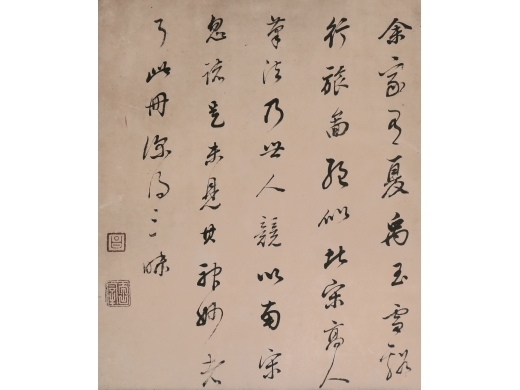 余家有夏禹玉雪谿
行旅圖絕似北宋高人
筆法乃世人競以南宋
忽諸是未見其神妙者
此冊深得三昧